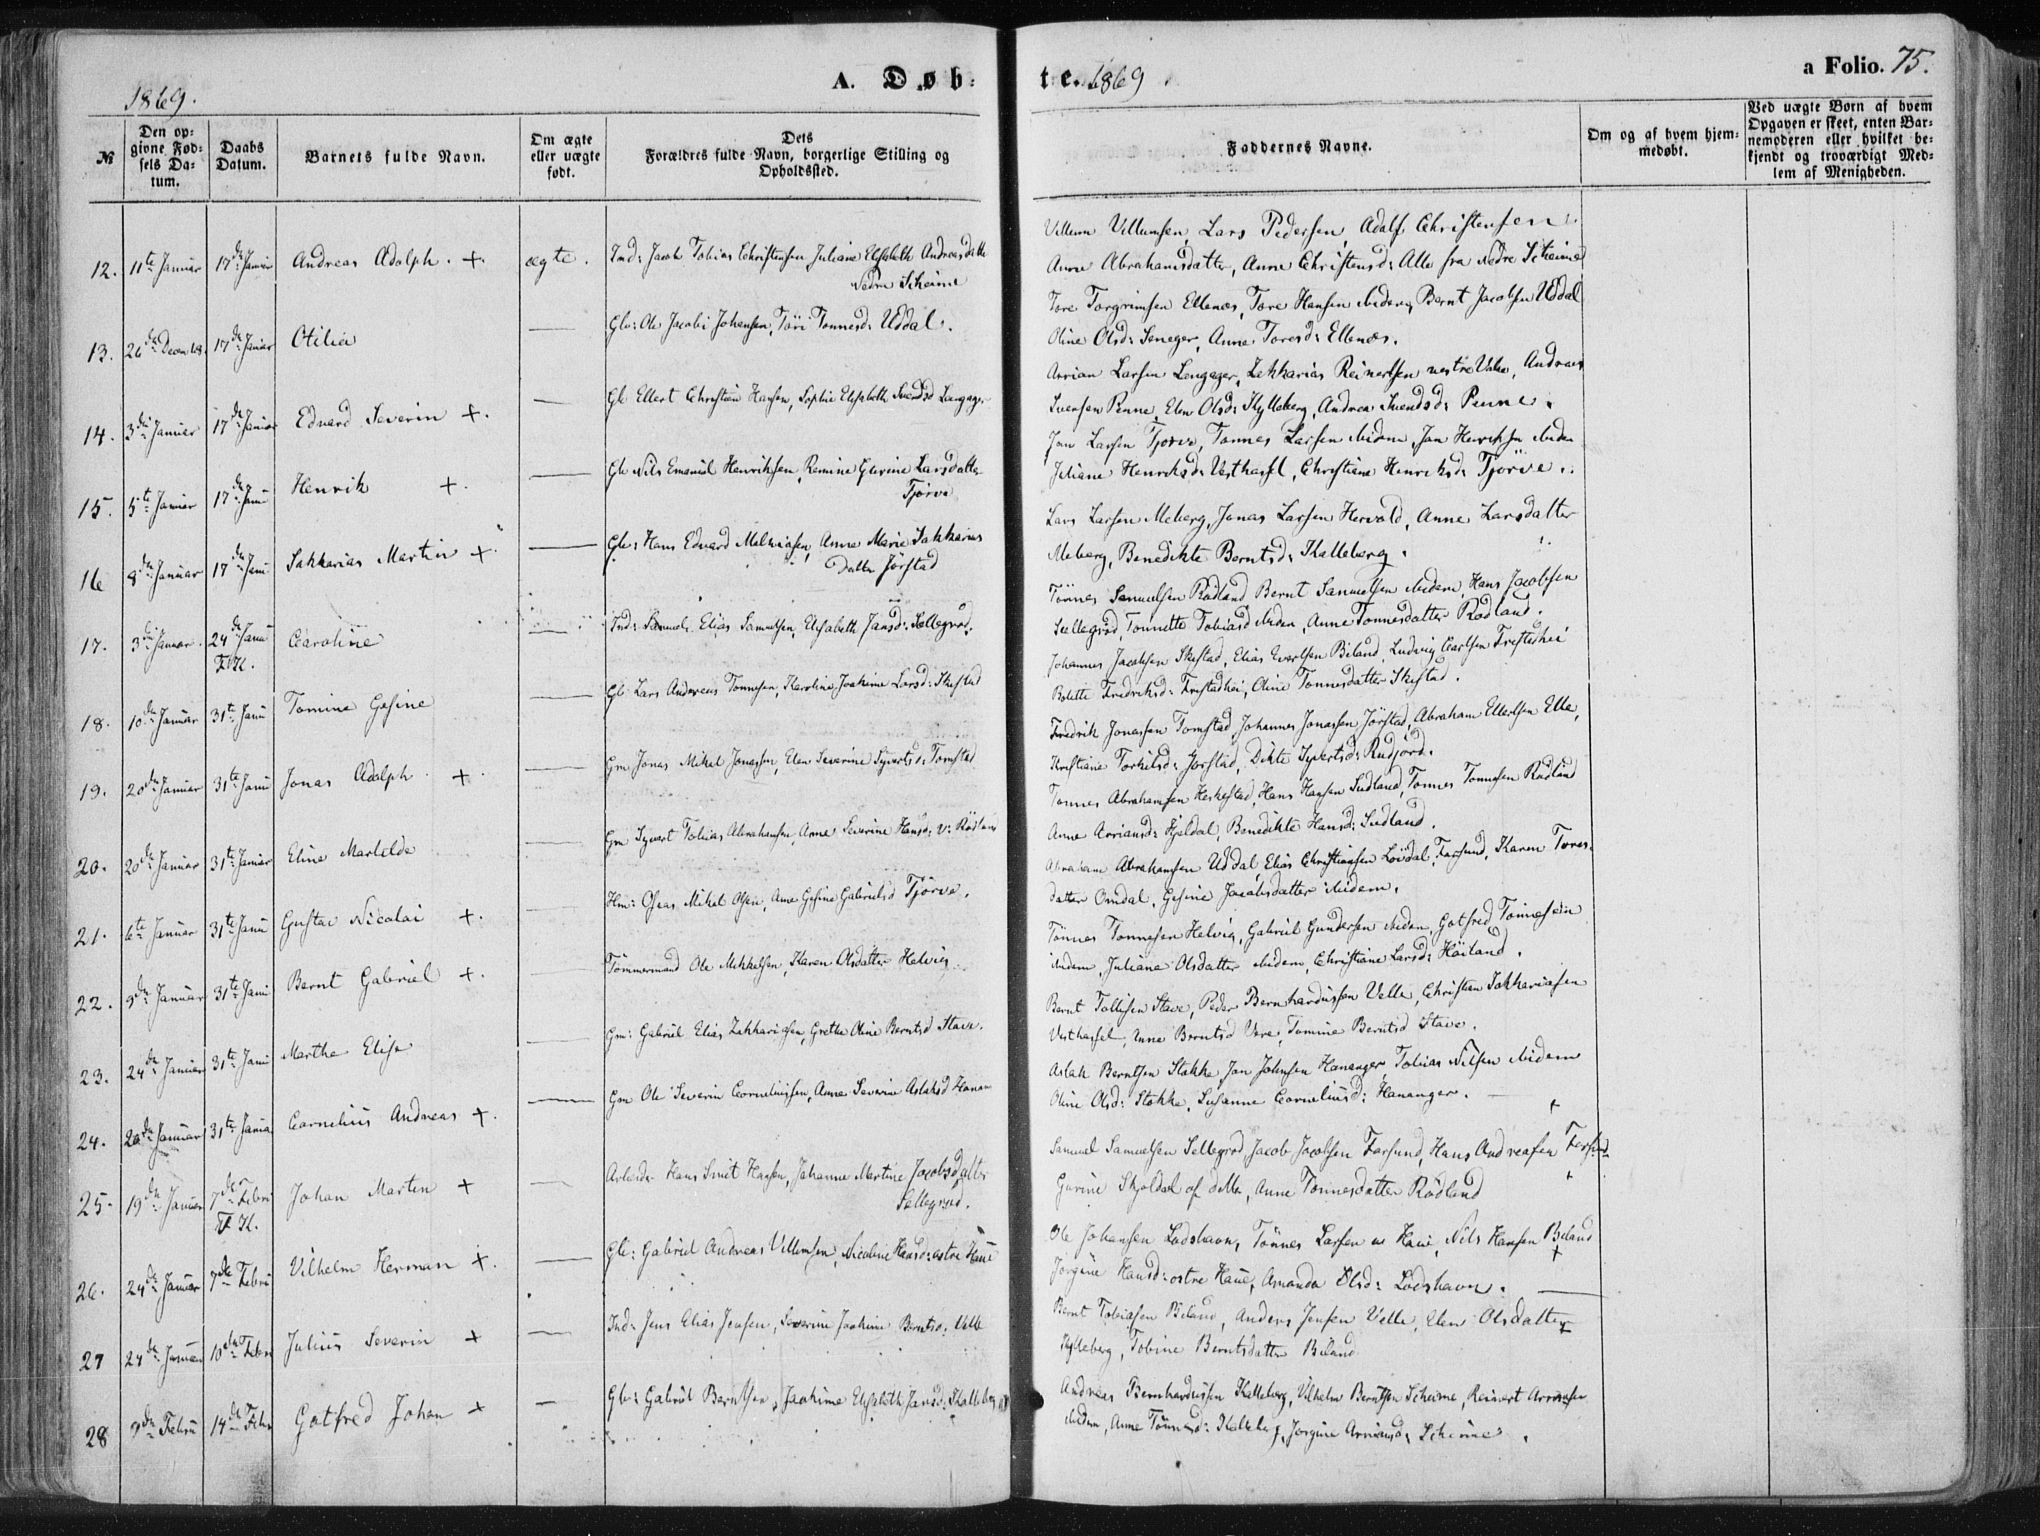 A. Døb-
te. 1869
a Folio. 75.
1869.
№
Den op-
givne Fød-
sels Da-
tum.
Daabs
Datum.
Barnets fulde Navn.
Om ægte
eller uægte
født.
Dets
Forældres fulde Navn, borgerlige Stilling og
Opholdssted.
Faddernes Navne.
Om og af hvem hjem-
medøbt.
Ved uægte Børn af hvem
Opgaven er skeet, enten Bar-
nemoderen eller hvilket be-
kjendt og troværdigt Med-
lem af Menigheden.
12. 11te Januar 17de Januar Andreas Adolph. +. ægte. Ind: Jacob Tobias Christensen Juliane Elisabeth Andreasdatter
Nedre Scheime
Villum Villumsen, Lars Pedersen, Adolf Christensen
Anne Abrahamsdatter, Anne Christensd: Alle fra Nedre Scheime
13. 26de Decem 68. 17de Januar Otilie — Gbr: Ole Jacobi Johansen, Töri Tonnesd: Uddal.
Tore Torgrimsen Ellenæs, Tore Hansen Midem, Bernt Jacobsen Uddal
Oline Olsd: Seneger, Anne Toresd: Ellenæs.
14. 3die Januar 17de Januar Edvard Severin +. — Gb Ellert Christian Hansen, Sophie Elisabeth Svendsd Langager
Arrian Larsen Lengager, Zakkarias Reinertsen vestre Vatne, Andreas
Iversen Penne, Elen Olsd: Kylleberg, Andrea Svendsd: Penne.
15. 5te Januar 17de Janu Henrik +. — Gb Nils Emanuel Henriksen, Remine Gurine Larsdatter
Tjörve
Jan Larsen Tjörve, Tonnes Larsen Midem, Jan Henriksen Midem
Juliane Henriksd: Vesthassel, Christiane Henriksd: Tjörve.
16 8de Januar 17de Janu Sakkarias Martin +. — Gb: Hans Edvard Mathiasen, Anne Marie Sakkarias
datter Jörstad
Lars Larsen Meberg, Jonas Larsen Hervold, Anne Larsdatter
Meberg, Benedikte Berntsd: Kalleberg.
17. 3die Januar. 24de Janu Caroline — Ind: Samuel Elias Samuelsen, Elisabeth Jansd: Sellegrod.
F. K.
Tönnes Samuelsen Rödland Bernt Samuelsen Midem, Hans Jacobsen
Sellegrod Tonnette Tobiasd Midem, Anne Tonnesdatter Rödland.
18. 10de Januar 31te Janu Tomine Gesine — Gb: Lars Andreas Tonnesen, Karoline Joakime Larsd: Skeistad
Johannes Jacobsen Skeistad, Elias Evertsen Biland, Ludvig Carlsen Frestadhei
Bolette Fredriksd: Frestadhei, Oline Tonnesdatter Skeistad.
19. 20de Januar 31te Janu Jonas Adolph. +. — Gm Jonas Mikal Jonassen, Elen Severine Syvertsd: Tomstad
Fredrik Jonassen Tomstad, Johannes Jonassen Jörstad, Abraham Ellertsen Elle,
Kristiane Torkilsd: Jörstad, Dikte Syvertsd: Rudjord.
20. 20de Januar 31te Januar Eline Martilde — Gm Syvert Tobias Abrahamsen, Anne Severine Hansd: V: Rödland
Tonnes Abrahamsen Heskestad, Hans Hansen Sudland, Tonnes Tonnesen Rudland
Anne Arriansd: Hjeldal, Benedikte Hansd: Sudland.
21. 6te Januar 31te Janu Gustav Nicolai +. — Hm: Osias Mikal Olsen, Ane Gesine Gabrielsd Tjörve.
Abraham Abrahamsen Uddal, Elias Christiansen Loudal, Farsund, Karen Tores-
datter Omdal, Gesine Jacobsdatter Midem.
22. 9de Januar 31te Janu Bernt Gabriel +. Tömmermand Ole Mikkelsen, Karen Olsdatter Helvig
Tönnes Tonnesen Helvig, Gabriel Gundersen Midem, Gotfred Tonnesen
Midem, Juliane Olsdatter Midem, Christiane Larsd: Höiland.
23. 24de Januar 31te Janu Marthe Elise — Gm: Gabriel Elias Zakkariasen, Grethe Oline Berntsd Stave.
Bernt Tollisen Stave, Peder Bernhardussen Velle, Christian Sakkariasen
Vesthassel, Anne Berntsd Vere, Tomine Berntsd Stave.
24. 20de Januar 31te Janua Cornelius Andreas +. — Gm Ole Severin Corneliussen, Anne Severine Aslaksd Hanan
Aslak Berntsen Stokke, Jan Johnsen Hananger Tobias Nilsen Midem
Oline Olsd: Stokke, Susanne Corneliusd: Hananger. —
25. 19de Januar 7de Febru Johan Martin + — Arbeider Hans Smit Hansen, Johanne Martine Jacobsdatter
F. K. Sellegrod.
Samuel Samuelsen Sellegrod, Jacob Jacobsen Farsund, Hans Andreasen Farsund
Gurine Skjoldal af dette, Anne Tonnesdatter Rödland
26. 24de Januar 7de Febru Vilhelm Herman +. — Gb: Gabriel Andreas Villumsen, Nicoline Hansd: östre Haue
Ole Johansen Lodshavn, Tönnes Larsen n Haue, Nils Hansen Biland
Jorgine Hansd: ostre Haue, Amanda Olsd: Lodshavn.
27 24de Januar 10de Febru Julius Severin + — Ind: Jens Elias Jensen, Severine Joakime Berntsd: Velle
Bernt Tobiasen Biland, Anders Jensen Velle, Elen Olsdatter
Kylleberg, Tobine Berntsdatter Biland
28 9de Febru 14de Febru Gotfred Johan + — Gb: Gabriel Berntsen, Joakime Elisabeth Jansd: Kalleberg
Andreas Bernhardussen Kalleberg, Vilhelm Berntsen Scheime, Reinert Arriansen
Midem, Anne Tönnesd: Kalleberg, Jorgine Arriansd: Scheime.